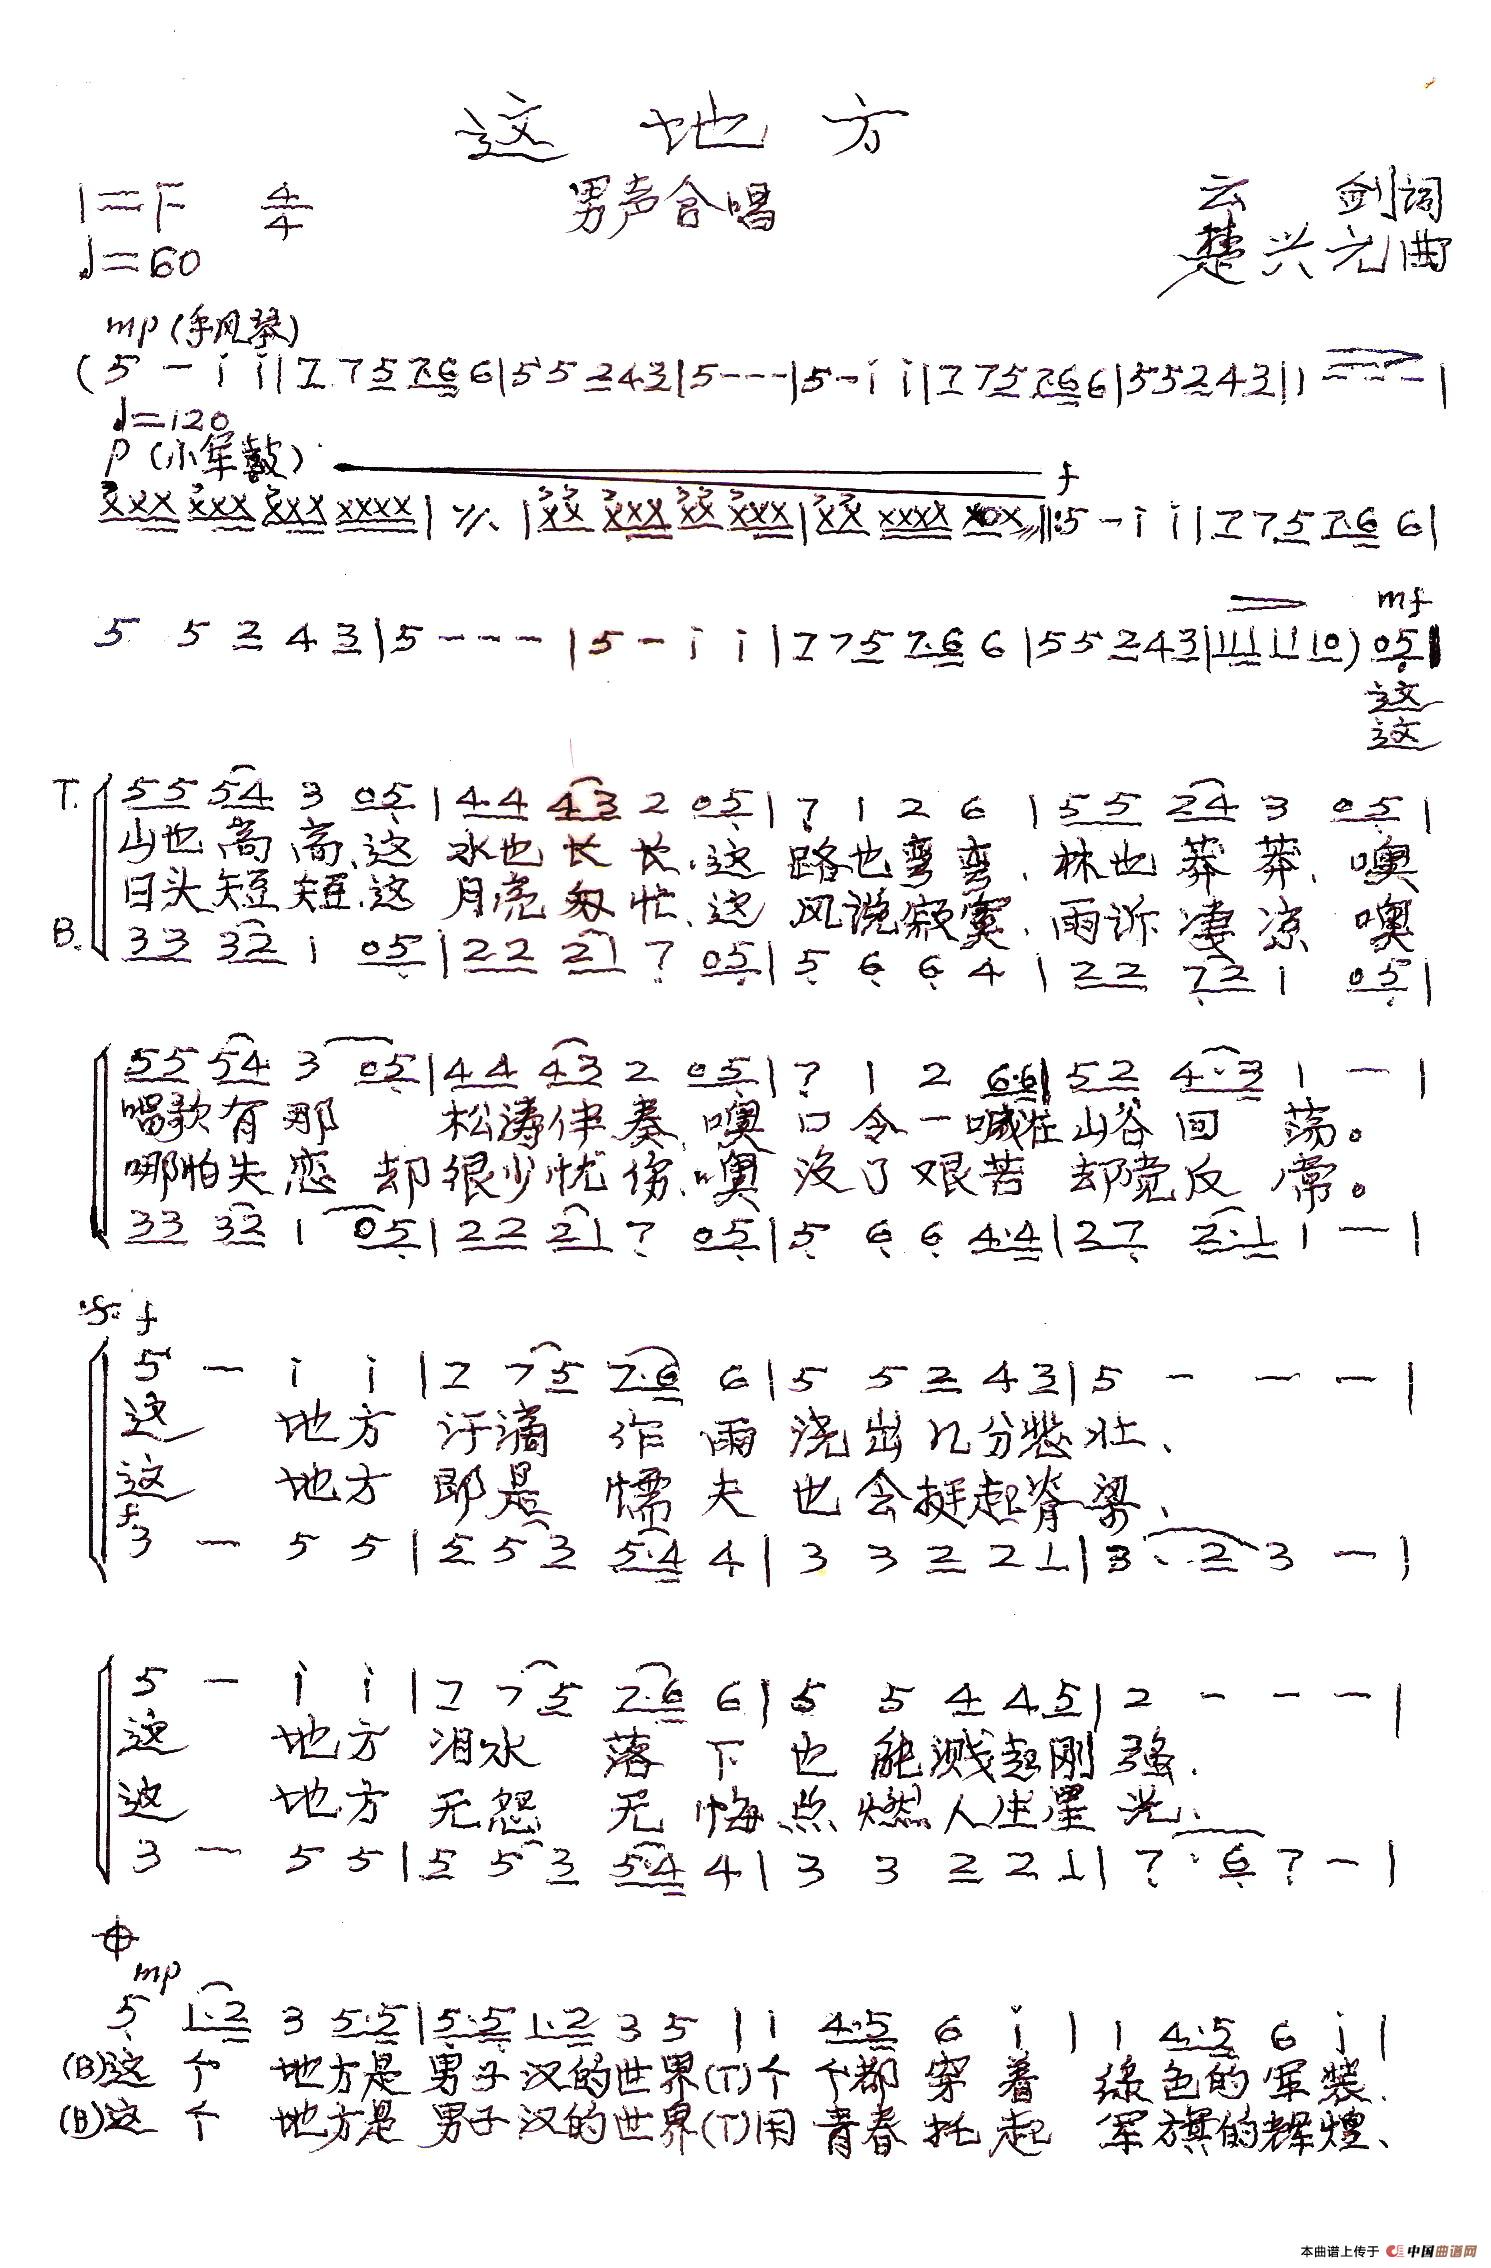 这 地 方
1=F 4/4 男声合唱 云 剑词
♩=60 楚兴元曲
mp(手风琴)
(5 - i i|7 7 5 7·6 6|5 5 2 4 3|5 - - -|5 - i i|7 7 5 7·6 6|5 5 2 4 3|1 - - -|
♩=120
p(小军鼓) f
xxx xxx xxx xxxx|٪|xx xxx xx xxx|xx xxxx xox ‖:5 - i i|7 7 5 7·6 6|
mf
5 5 2 4 3|5 - - -|5 - i i|7 7 5 7·6 6|5 5 2 4 3|111 11 10) 05‖
这
这
T. 55 54 3 05|44 43 2 05|7 1 2 6|55 24 3 05|
山也高高、这 水也长长、这 路也弯弯、林也莽莽、噢
日头短短、这 月亮匆忙、这 风说寂寞、雨诉凄凉 噢
B. 33 32 1 05|22 21 7 05|5 6 6 4|22 72 1 05|
55 54 3 05|44 43 2 05|7 1 2 6·6|52 4·3 1 -|
唱歌有那 松涛伴奏、噢 口令一喊在山谷回 荡。
哪怕失恋 却很少忧伤、噢 没了艰苦 却觉反 常。
33 32 1 05|22 21 7 05|5 6 6 4·4|27 2·1 1 -|
f
5 - i i|7 7 5 7·6 6|5 5 2 4 3|5 - - -|
这 地方 汗滴 作雨 浇出几分悲壮、
这 地方 即是 懦夫 也会挺起脊梁、
f
3 - 5 5|5 5 3 5·4 4|3 3 2 2 1|3 · 2 3 -|
5 - i i|7 7 5 7·6 6|5 5 4 4 5|2 - - -|
这 地方 泪水 落下 也能溅起刚强、
这 地方 无怨 无悔点燃人生星光、
3 - 5 5|5 5 3 5·4 4|3 3 2 2 1|7 · 6 7 -|
mp
5 1·2 3 5·5|5·5 1·2 3 5|1 4·5 6 i|1 4·5 6 i|
(B)这个 地方是男子汉的世界(T)个个都穿着 绿色的军装、
(B)这个 地方是男子汉的世界(T)用青春托起 军旗的辉煌、
本曲谱上传于 中国曲谱网